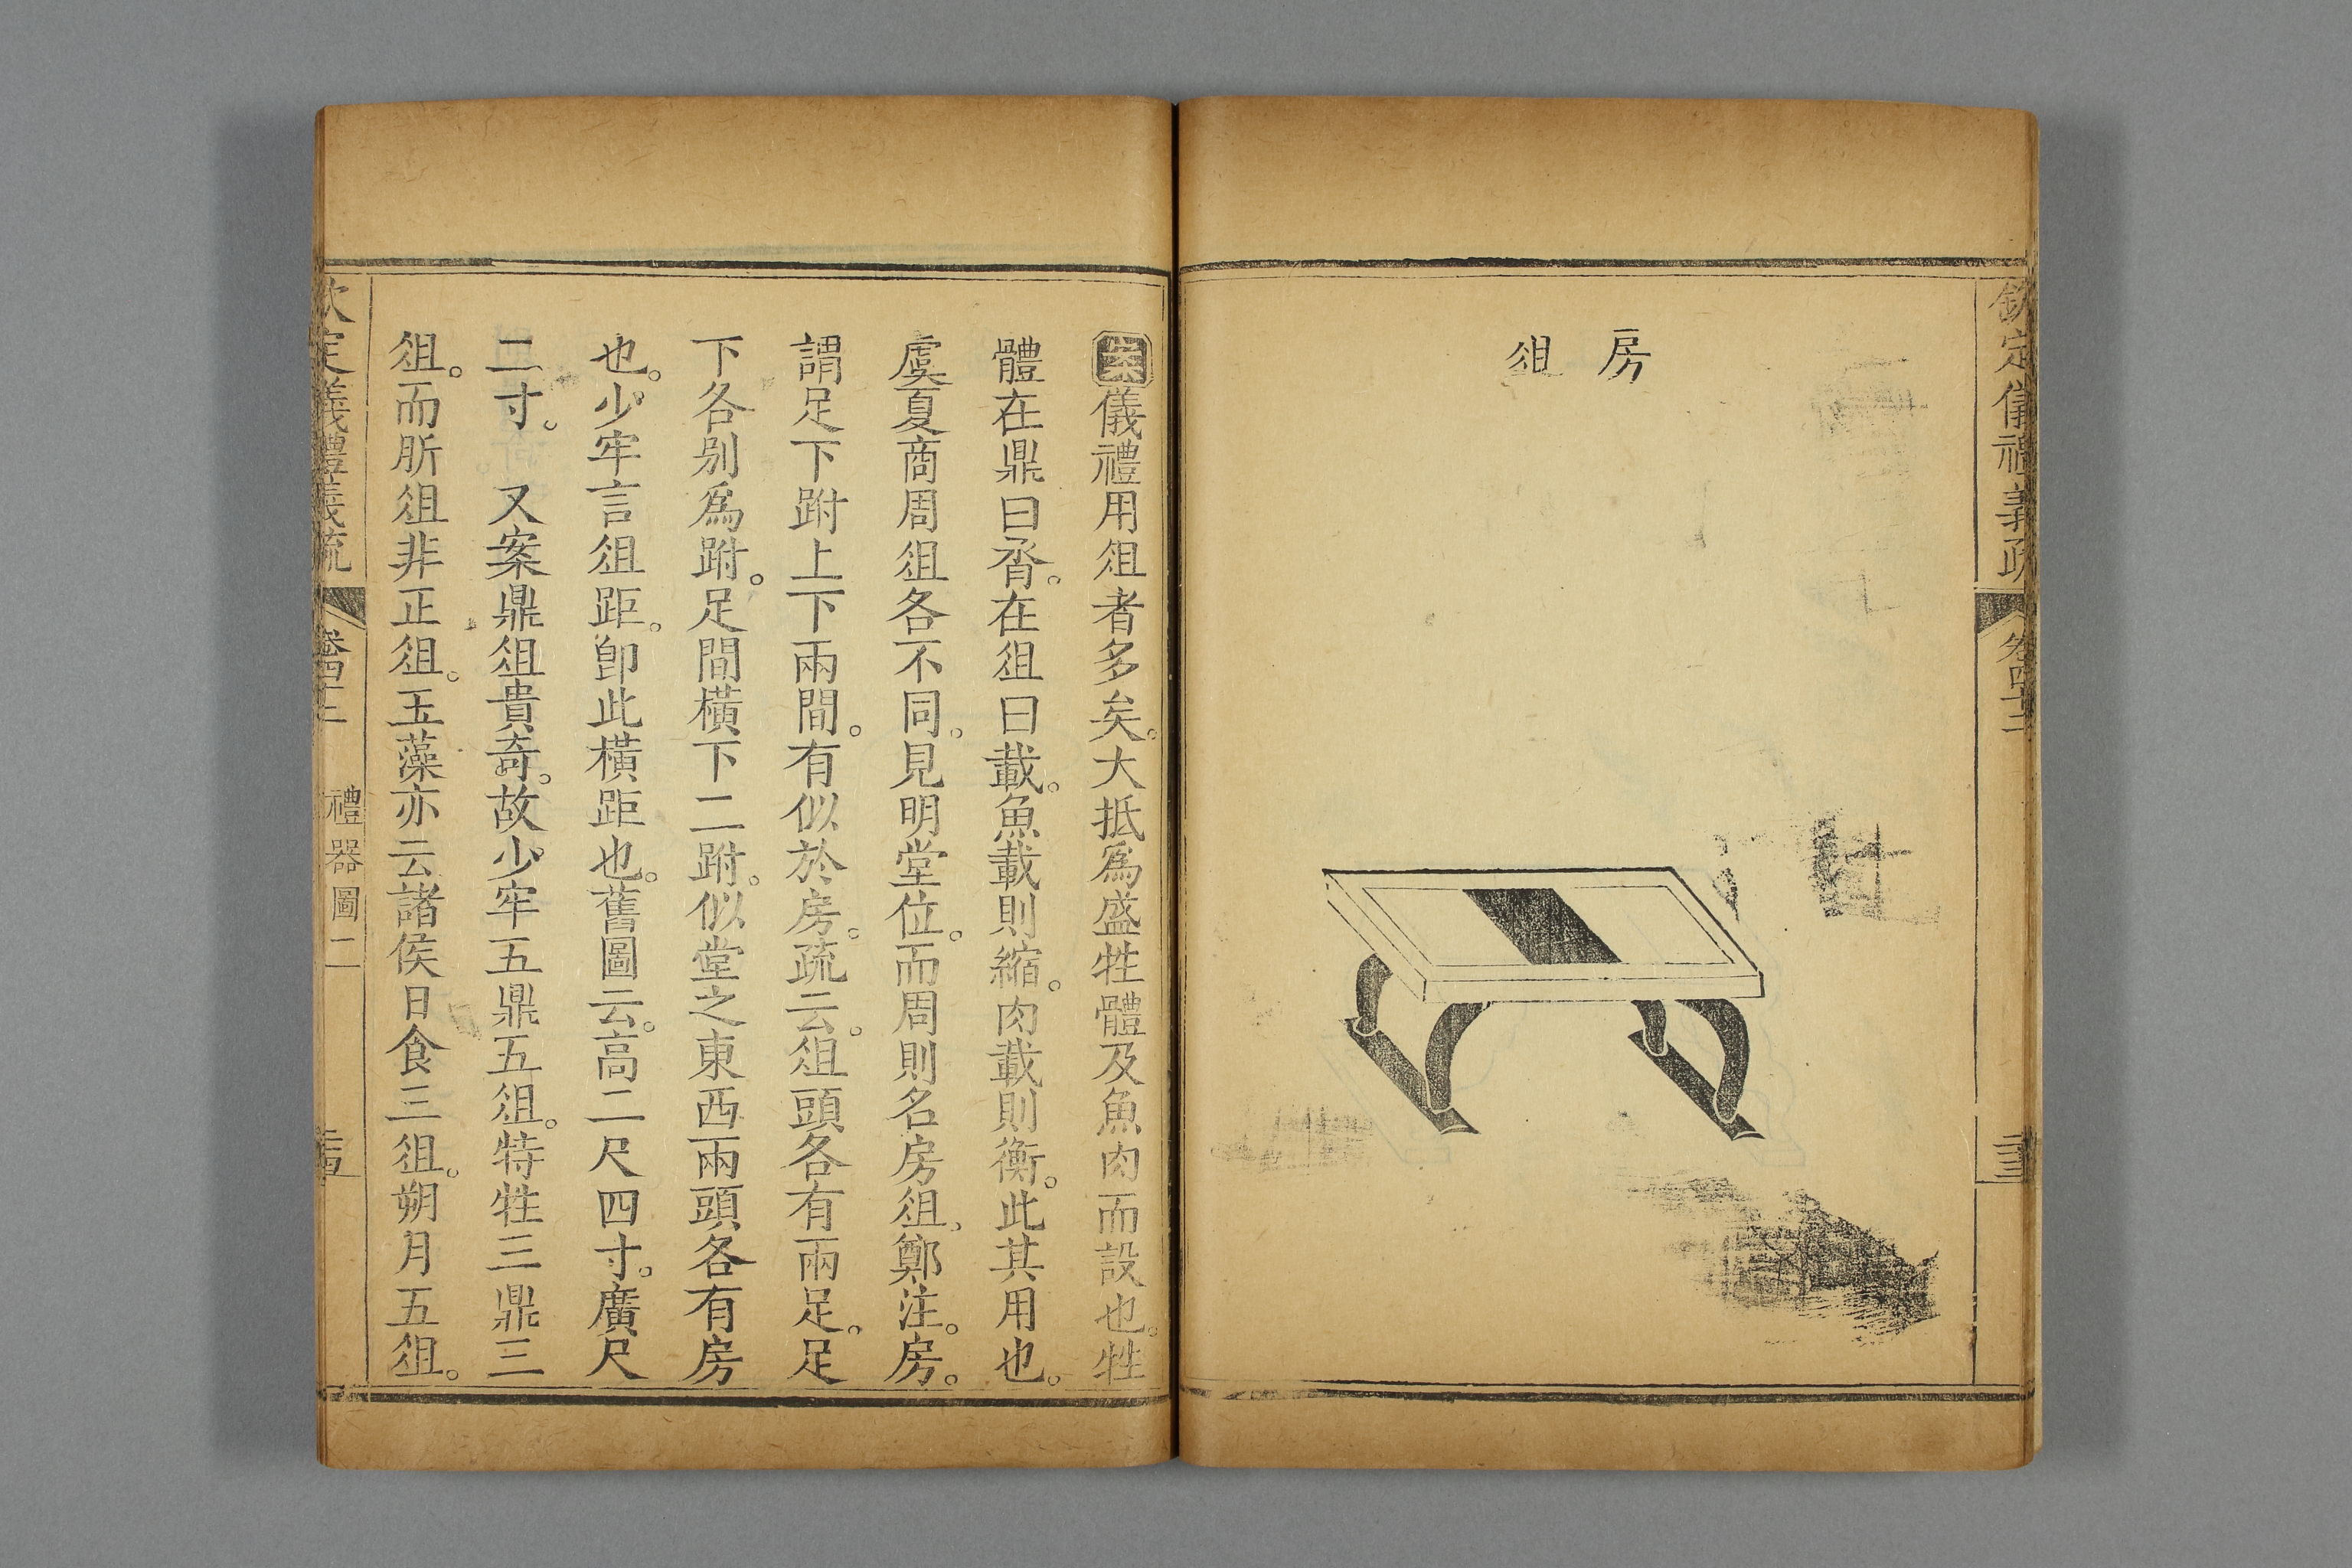 欽定儀禮義疏 卷四十三
房俎
案儀禮用俎者多矣。大抵爲盛牲體及魚肉而設也。牲
體在鼎曰脀。在俎曰載。魚載則縮。肉載則衡。此其用也。
虞夏商周俎各不同。見明堂位。而周則名房俎。鄭注。房。
謂足下跗上下兩間。有似於房。疏云。俎頭各有兩足。足
下各別爲跗。足間橫下二跗。似堂之東西兩頭各有房
也。少牢言俎距。卽此橫距也。舊圖云。高二尺四寸。廣尺
二寸。 又案鼎俎貴奇。故少牢五鼎五俎。特牲三鼎三
俎。而肵俎非正俎。玉藻亦云諸侯日食三俎。朔月五俎。
欽定儀禮義疏 卷四十三 禮器圖二